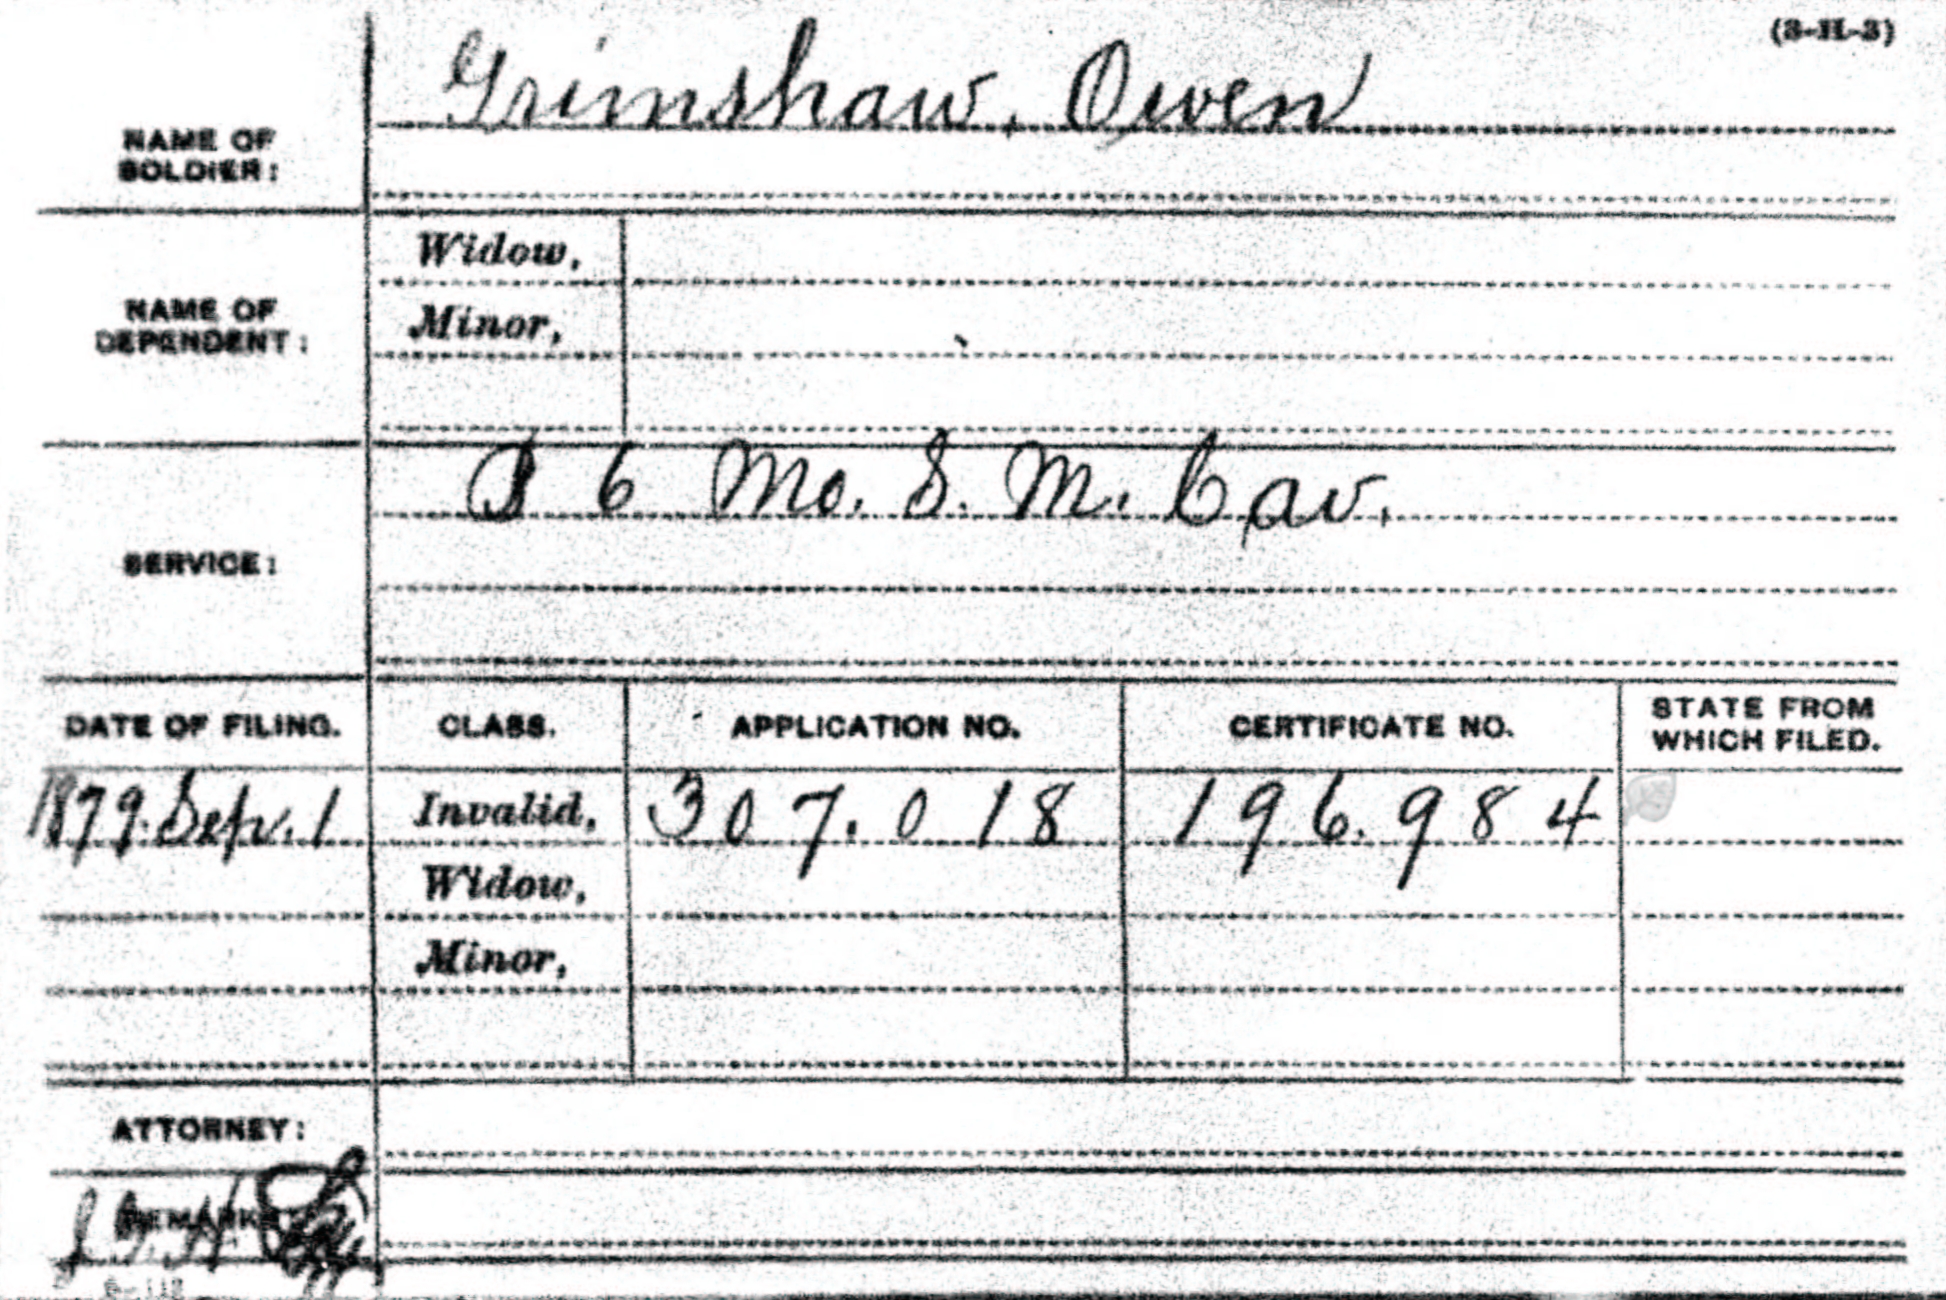 (3-H-3)
Grimshaw, Owen
NAME OF
SOLDIER:
Widow,
NAME OF
DEPENDENT:
Minor,
6 Mo. S. M. Cav.
SERVICE:
DATE OF FILING. CLASS. APPLICATION NO. CERTIFICATE NO. STATE FROM
WHICH FILED.
1879. Sep. 1 Invalid, 307.018 196.984
Widow,
Minor,
ATTORNEY:
REMARKS: